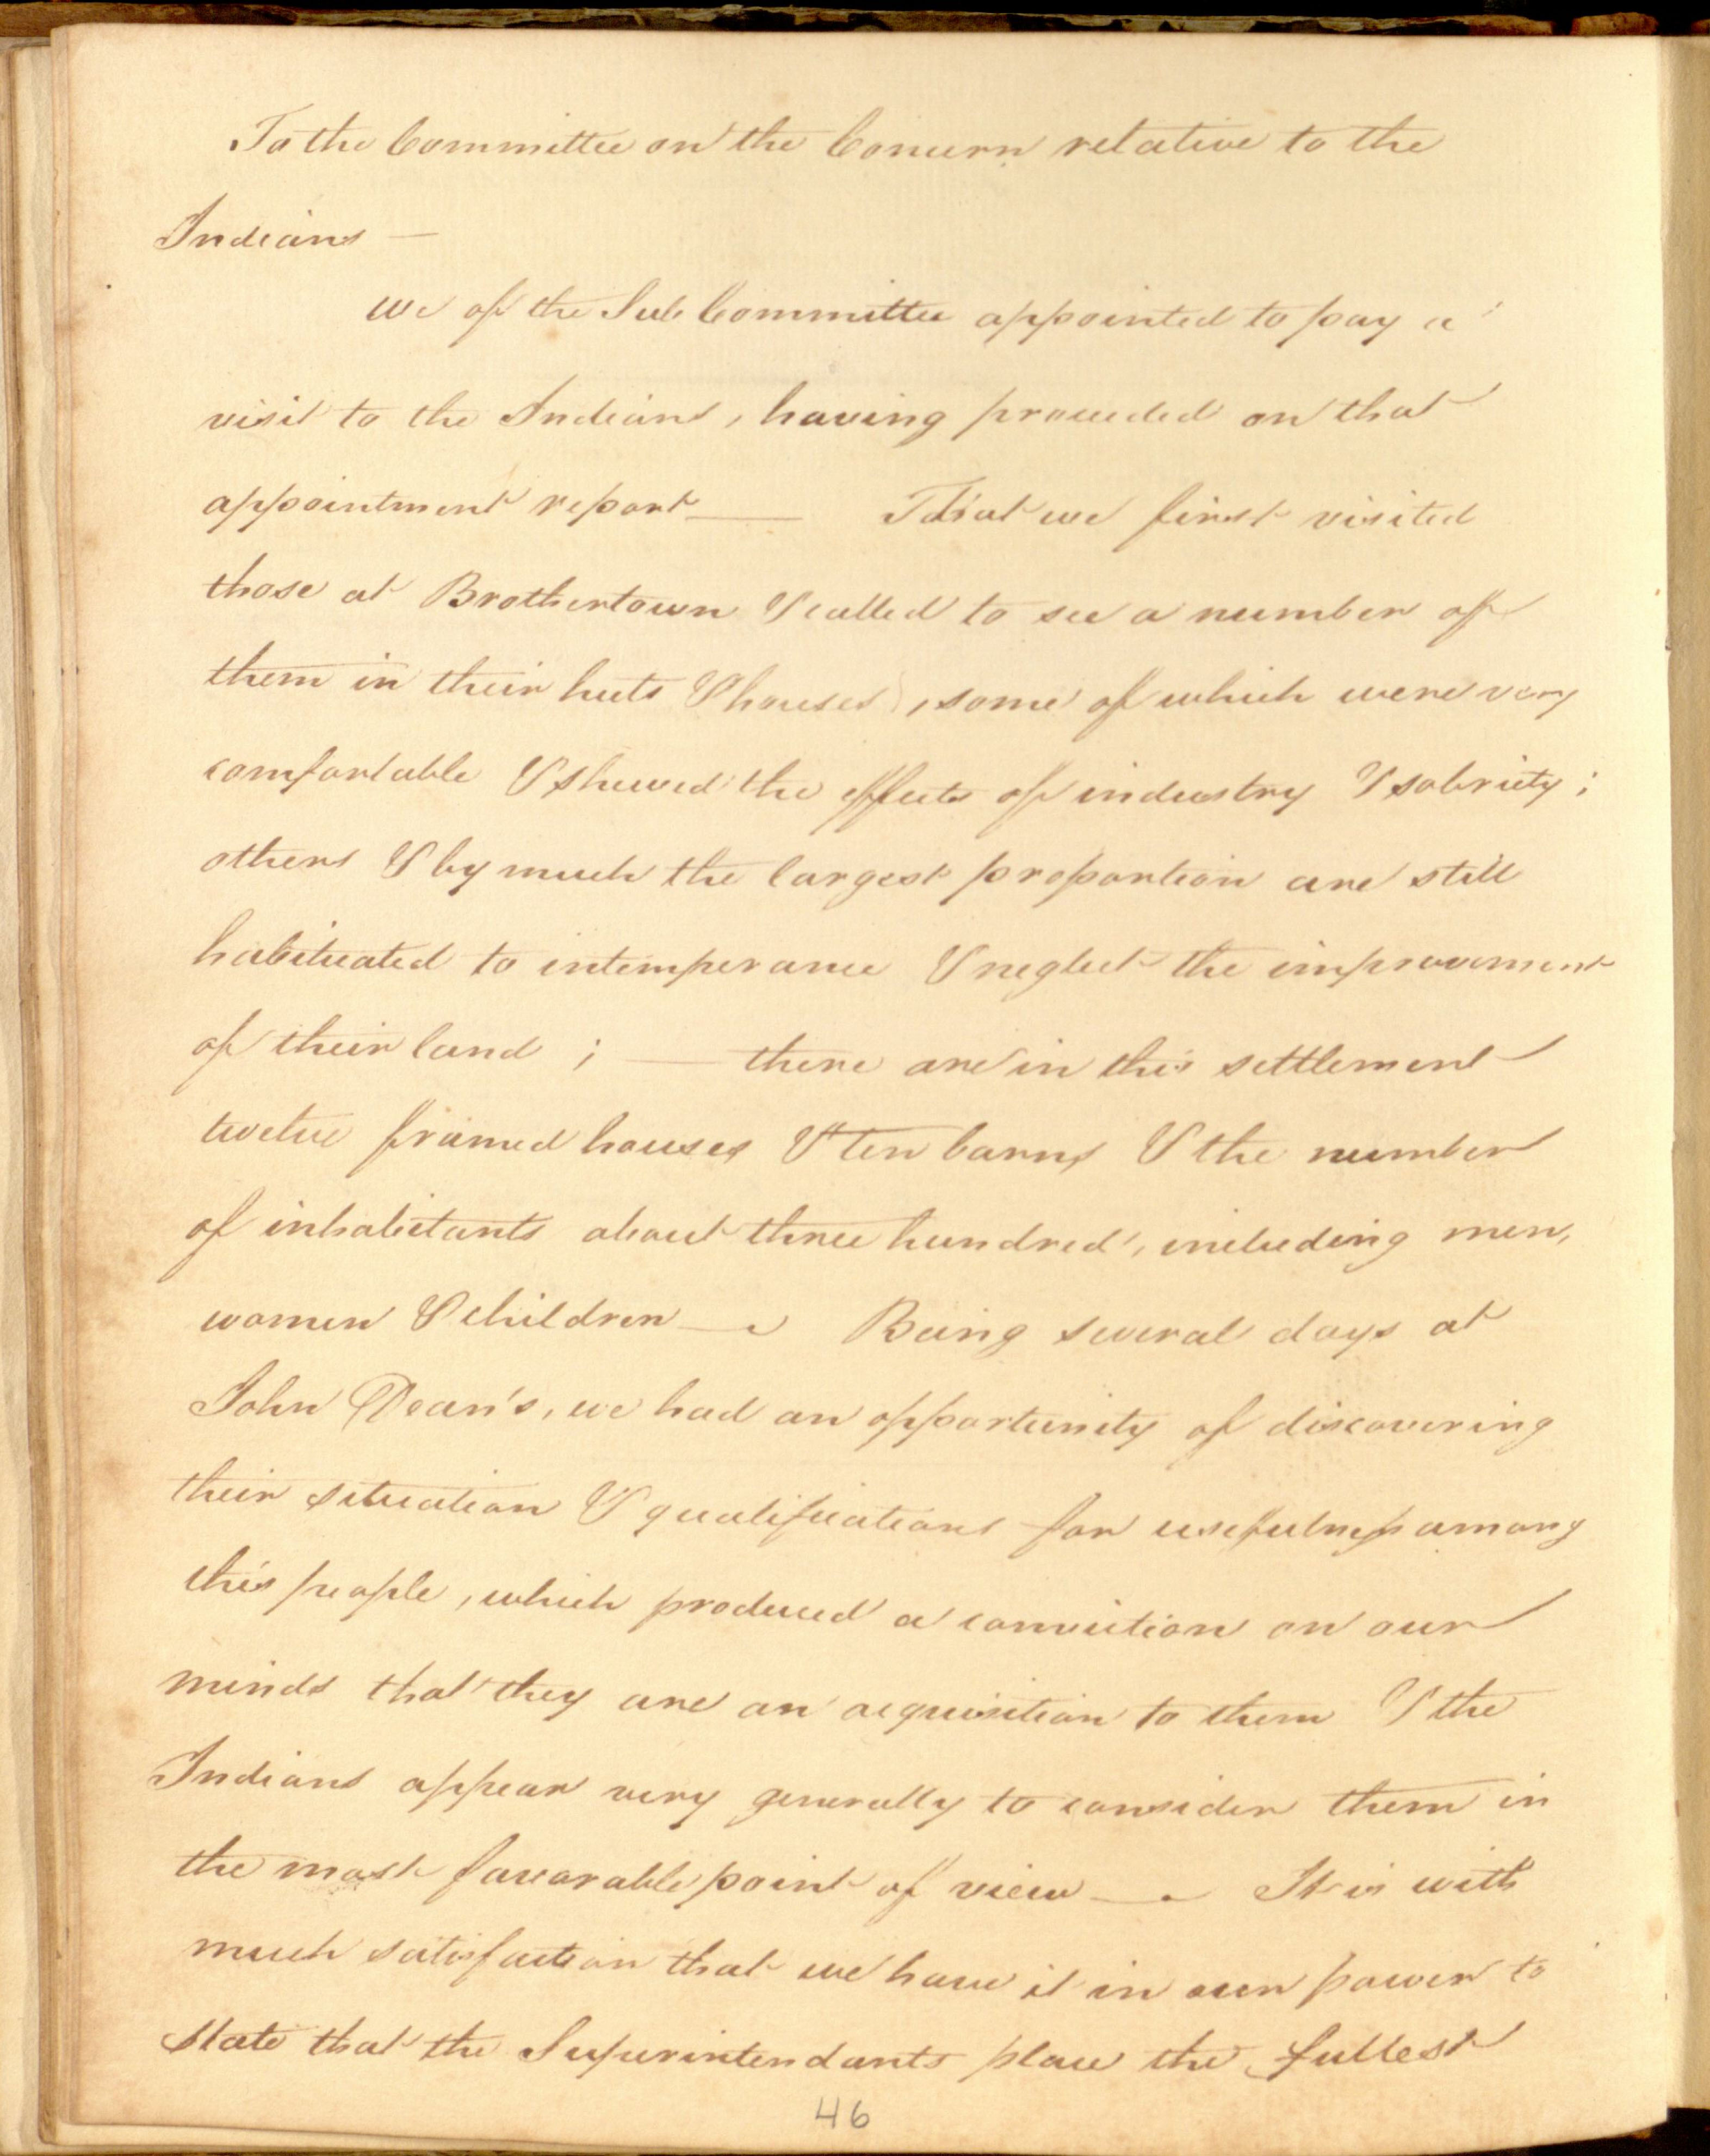 To the Committee on the Concern relative to the
Indians —
we of the Sub Committee appointed to pay a
visit to the Indians, having proceeded on that
appointment report — That we first visited
those at Brothertown & called to see a number of
them in their huts & houses, some of which were very
comfortable & shewed the effects of industry & sobriety;
others & by much the largest proportion are still
habituated to intemperance & neglect the improvement
of their land; — there are in this settlement
twelve framed houses & ten barns & the number
of inhabitants about three hundred, including men,
women & children —. Being several days at
John Dean's, we had an opportunity of discovering
their situation & qualifications for usefulness among
this people, which produced a conviction on our
minds that they are an acquisition to them & the
Indians appear very generally to consider them in
the most favorable point of view —. It is with
much satisfaction that we have it in our power to
state that the Superintendants place the fullest
46